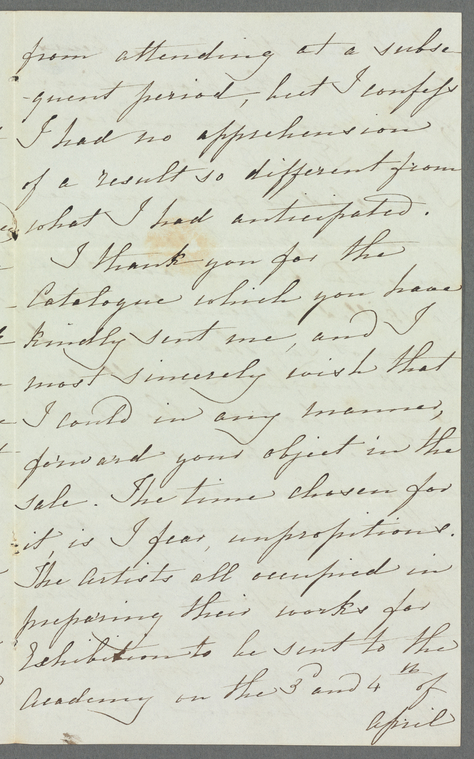 from attending at a subse
-quent period, but I confess
I had no apprehension
of a result so different from
what I had anticipated.
I thank you for the
Catalogue which you have
kindly sent me, and I
most sincerely wish that
I could in any manner,
forward your object in the
sale. The time chosen for
it, is I fear, unpropitious.
The Artists all occupied in
preparing their works for
Exhibition to be sent to the
Academy on the 3d and 4th of
April